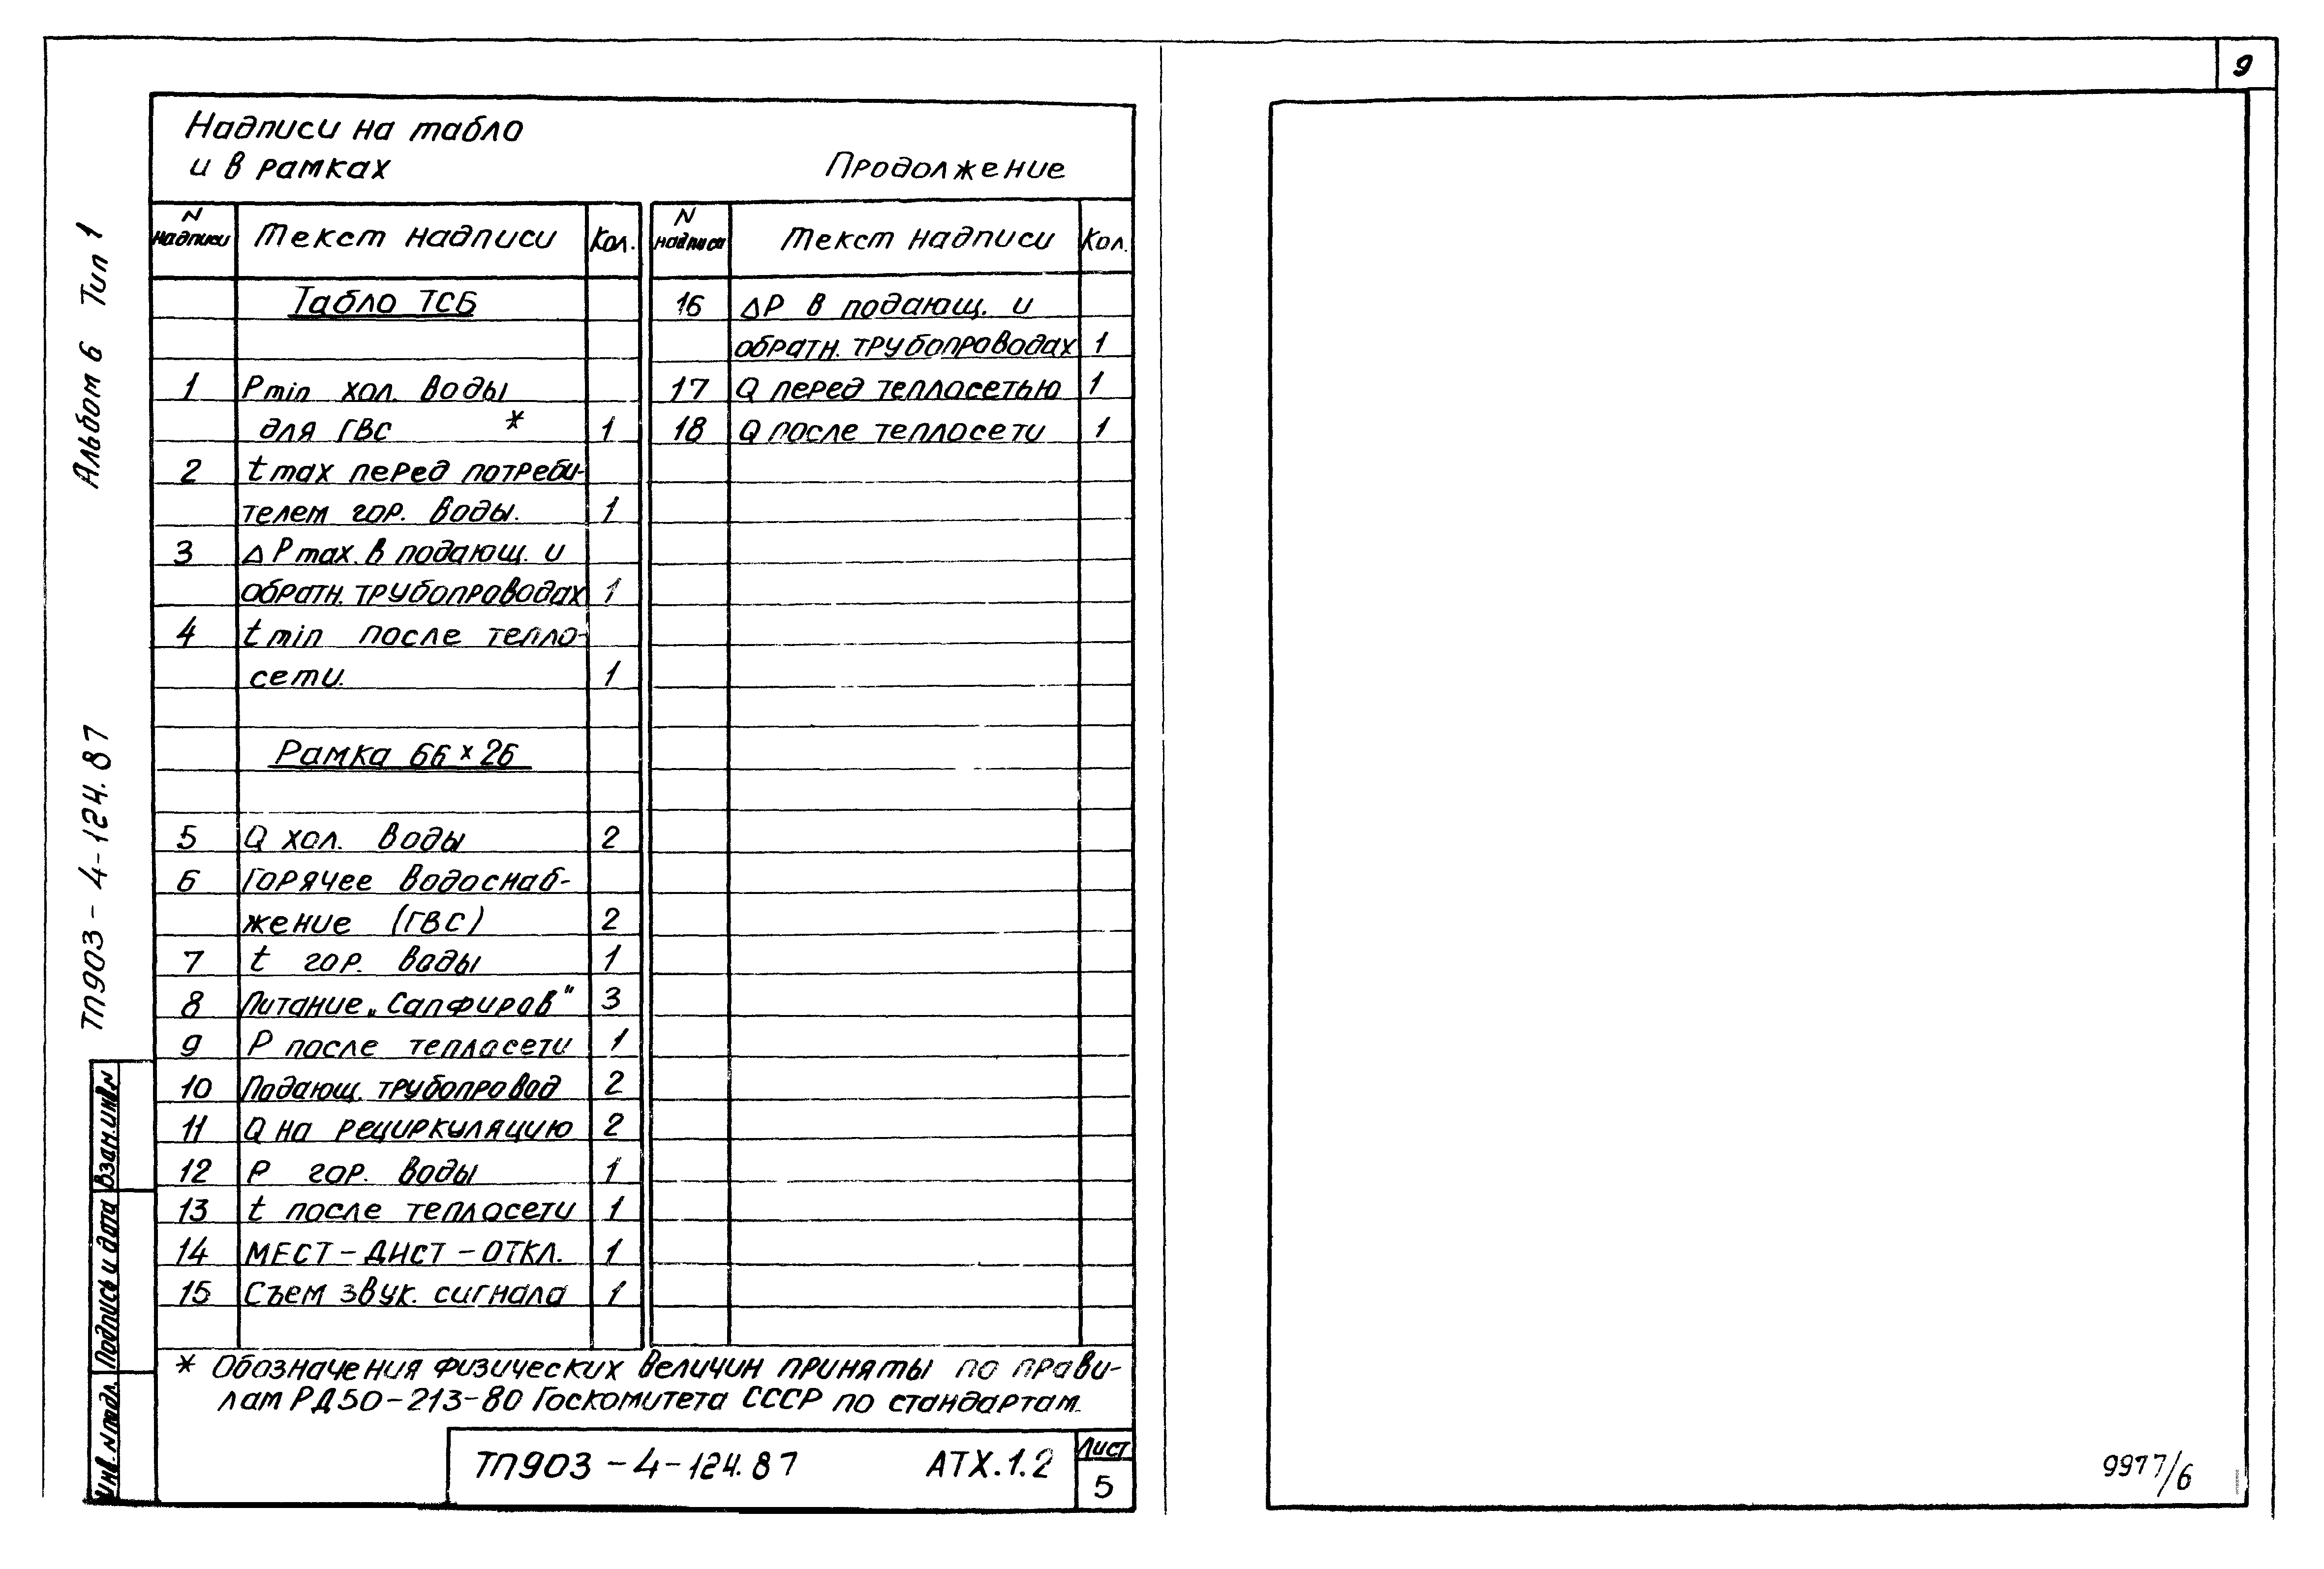 9
Альбом 6 Тип 1
ТП903-4-124.87
Надписи на табло
и в рамках
Продолжение
N надписи Текст надписи Кол.
Табло ТСБ
1 Pmin хол. воды
для ГВС * 1
2 tmax перед потреби-
телем гор. воды. 1
3 ΔPmax. в подающ. и
обратн. трубопроводах 1
4 tmin после тепло-
сети. 1
Рамка 66×26
5 Q хол. воды 2
6 Горячее водоснаб-
жение (ГВС) 2
7 t гор. воды 1
8 Питание „Сапфиров" 3
9 P после теплосети 1
10 Подающ. трубопровод 2
11 Q на рециркуляцию 2
12 P гор. воды 1
13 t после теплосети 1
14 МЕСТ-ДИСТ-ОТКЛ. 1
15 Съем звук. сигнала 1
N надписи Текст надписи Кол.
16 ΔP в подающ. и
обратн. трубопроводах 1
17 Q перед теплосетью 1
18 Q после теплосети 1
* Обозначения физических величин приняты по прави-
лам РД50-213-80 Госкомитета СССР по стандартам.
Взам. инв. N
Подпись и дата
Инв. N подл.
ТП903-4-124.87 АТХ.1.2
Лист
5
9977/6